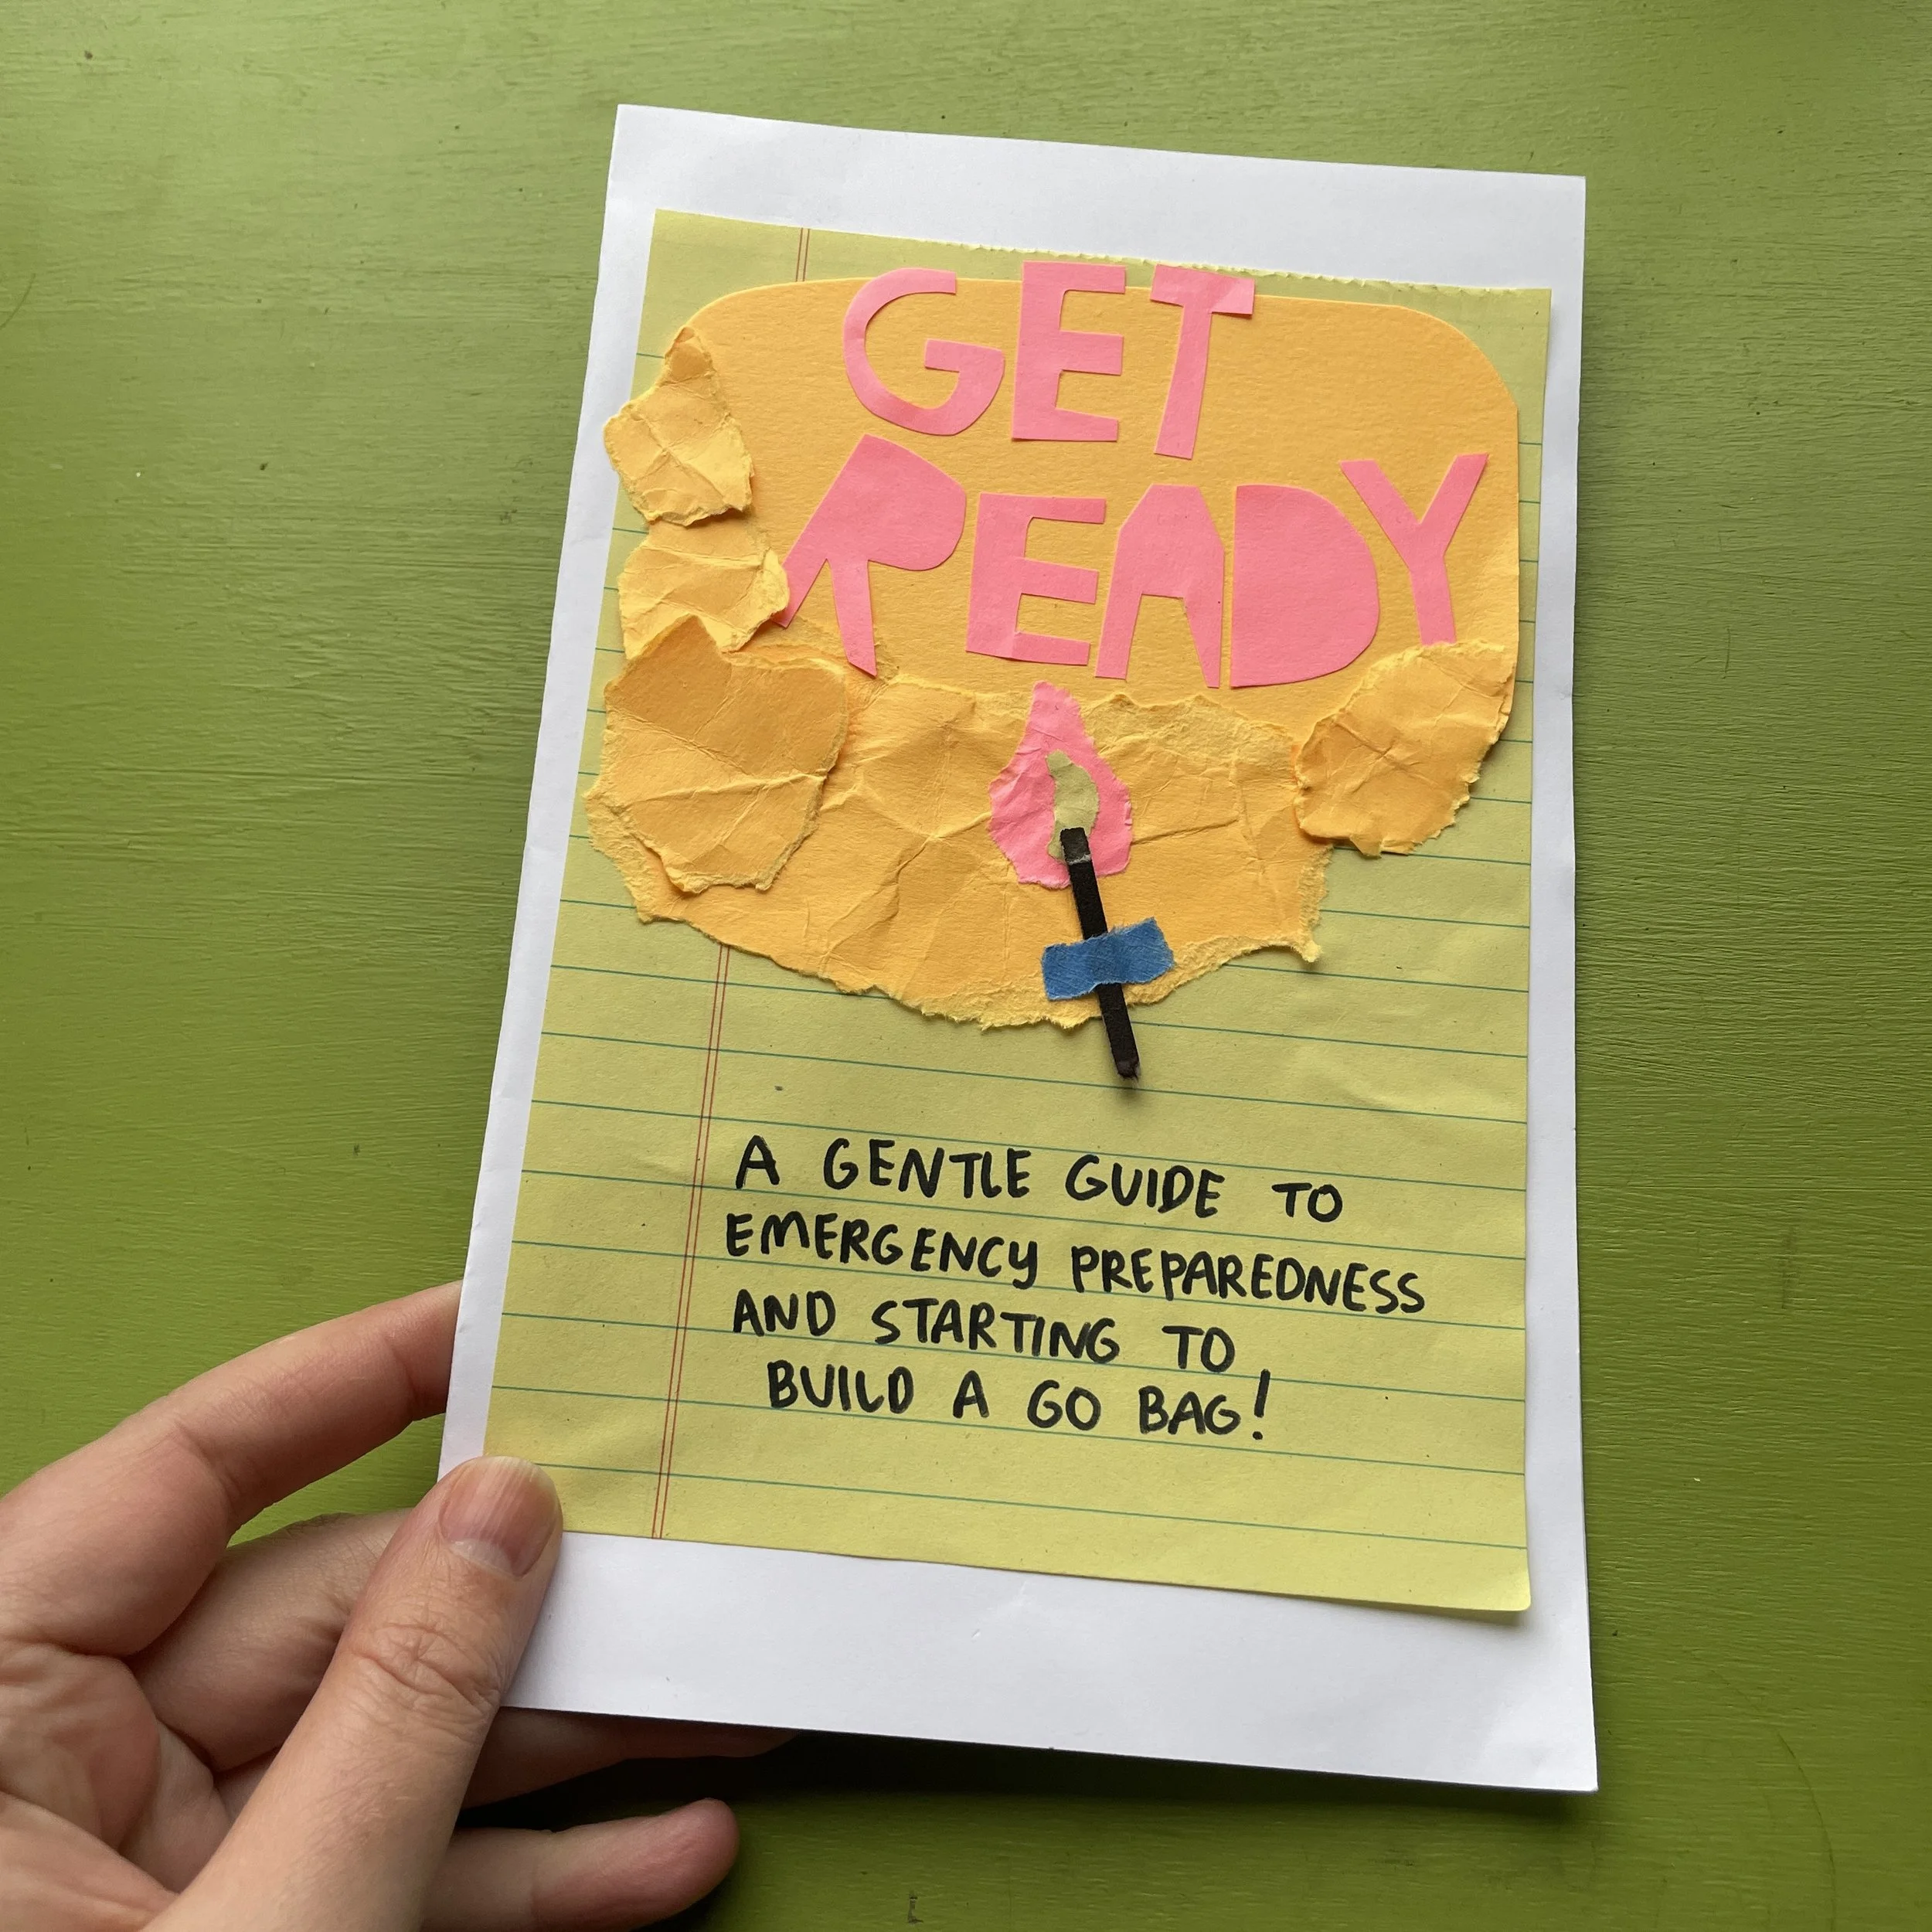 GET
READY
A GENTLE GUIDE TO
EMERGENCY PREPAREDNESS
AND STARTING TO
BUILD A GO BAG!